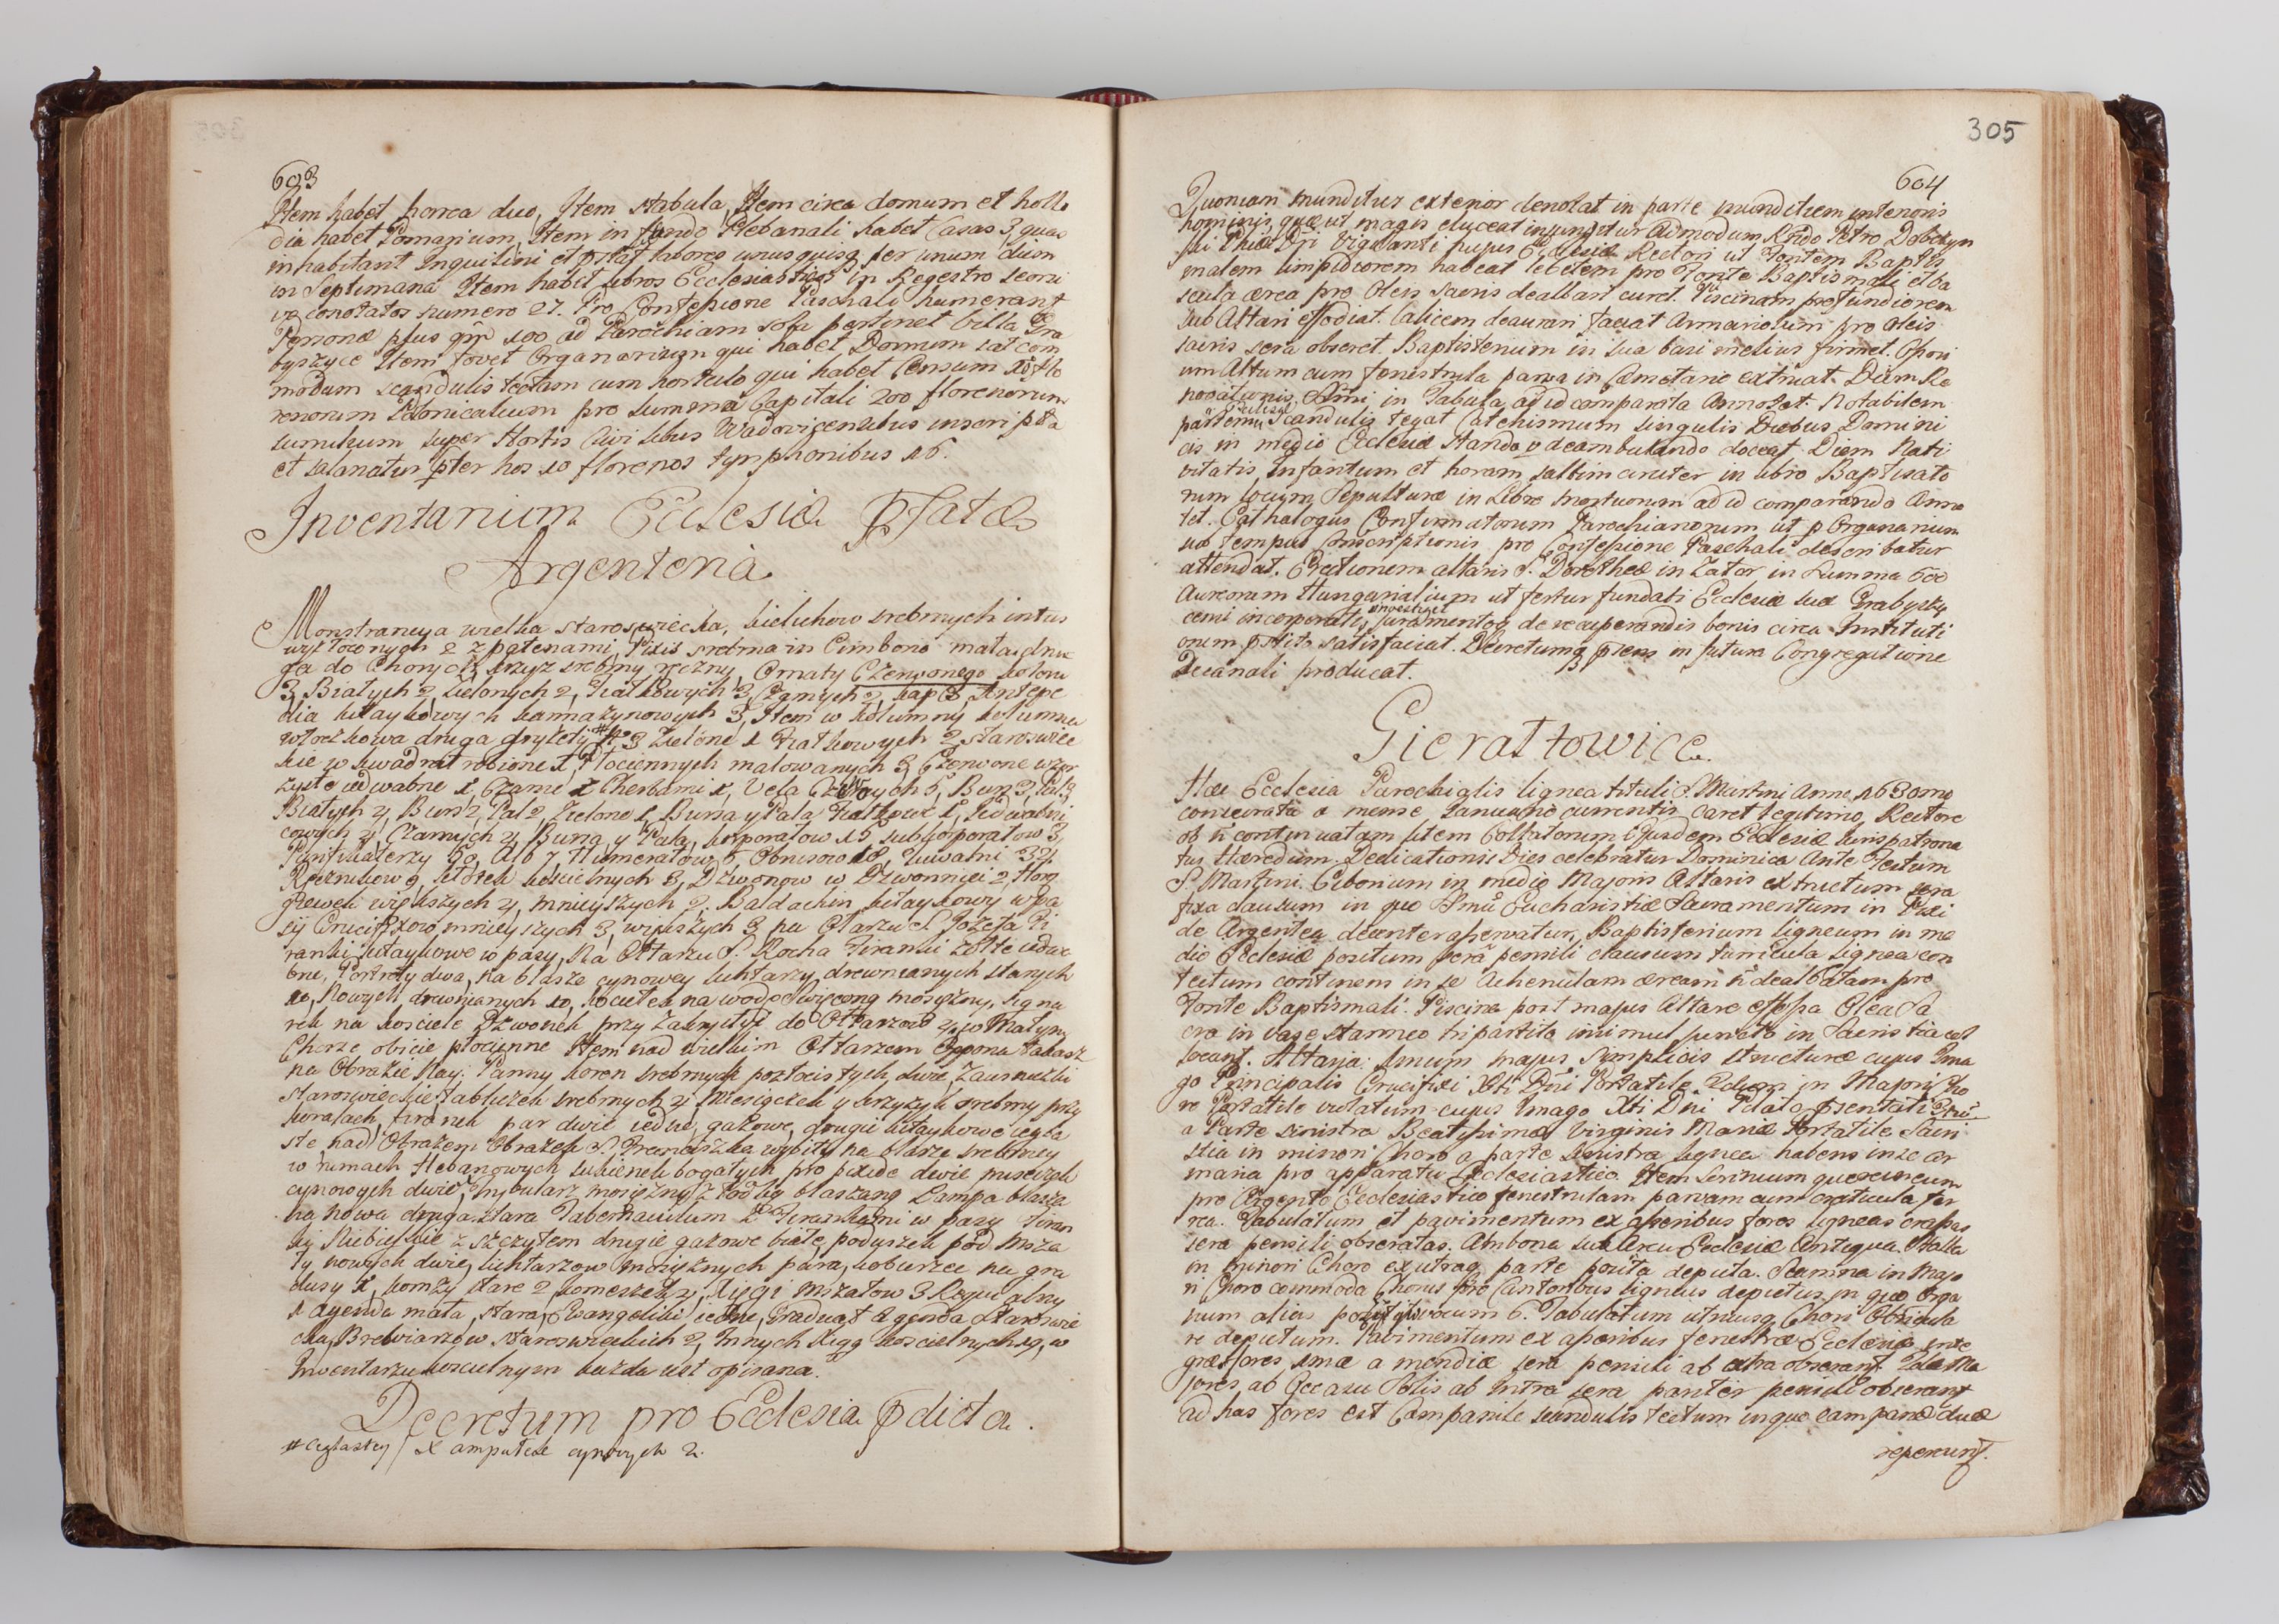 603
Item habet horrea duo, Item stabula, Item circa domum et hollo
dia habet Pomarium, Item in fundo Plebanali habet Casas 3, quas
inhabitant Inquilini et pstat labores unusquisq per unum diem
in Septimana Item habet libros Ecclesiasticos in Regestro seorsi
vo conotatos numero 27. Pro Confessione Paschali humerant
Personæ plus qm 100 ad Parochiam sola pertinet Villa Gra
byszyce Item fovet Organarium qui habet Domum sat com
modum scandulis tectam cum hortulo qui habet Censum
renorum Polonicalium pro summa Capitali 200 florenorum
similium super Hortis Civilibus Wadovicensibus inscripta
et salanatur pter hos 10 florenos tymphonibus 16.
Inventarium Ecclesiæ pfatæ
Argenteria
Monstrancya wielka staroswiecka, kielichow srebrnych intus
wyzłoconych 2 z patenami, Pixis srebrna in Cimborio mała, dru
ga do Chorych, krzyz srebrny ręczny, Ornaty Czerwonego koloru
3, Białych 2, zielonych 2, Fiałkowych 3, Czarnych 2, kap 3, Antepe
dia kitaykowych karmazynowych 3, Item w kolumny kolumna
włoczkowa druga gryzety # 3 Zielone 1 Fiałkowych 2 staroswiec
kie w kwadrat robione 1, Płociennych malowanych 3, Czerwone wzor
zyste iedwabne 1, Czarne z Cherbami 1, Vela Czerwonych 5, Burs 3, Pal 3
Białych 4, Burs 2, Pal 2 Zielone 1, Bursa y Pala Fiałkowe 1, Iedwabni
cowych 4, Czarnych 4, Bursa y Pala, korporałow 15 subkorporałow 3,
Puryfikaterzy 50, Alb 7, Humerałow 6, Obrusow 18, Tuwalni 32
Ręcznikow 9, kłodek koscielnych 3, Dzwonow w Dzwonnicy 2, Hor
gieweck większych 4, mnieyszych 2. Baldachin kitaykowy w pa
sy Crucifixow mnieyszych 3, większych 3 na Ołtarzu S. Jozefa Fi
ranki kitaykowe w pasy, Na Ołtarzu S. Rocha Firanki zołte iedwa
bne, Portrety dwa, na blasze cynowey lichtarzy drewnianych starych
10, Nowych drewnianych 10, kociełek na wodę Swięconą mosięzny, Sygna
rek na kosciele Dzwonek przy Zakrystyi do Ołtarzow 4, w Małym
Chorze obicie płocienne Item nad wielkim Ołtarzem Oppona
na Obrazie Nay: Panny koron srebrnych pozłocistych dwie, Zausniczki
staroswieckie tabliczek srebrnych 4, Miesiączek y krzyzyk srebrny przy
koralach, firanek par dwie iedne gazowe, drugie kitaykowe
ste nad Obrazem Obrazek S. Franciszka wybity na blasze srebrney
w ramach Hebanowych sukienek bogatych pro pixide dwie miseczek
cynowych dwie, Trybularz mosięzny z łodką blaszaną Lampa blasza
na nowa druga stara Tabernaculum z Firankami w pasy Firan
ky Niebieskie z szczytem drugie gazowe białe, poduszek pod msza
ły nowych dwie, lichtarzow mosięznych para, koburzec na gra
dusy 1, komzy stare 2 komeszek 4, Xięgi mszałow 3 Requialny
1 Agenda mała, stara, Ewangeliki iedne, Graduał Agenda staroswie
cka, Brewiarzow staroswieckich 2, Innych Xiąg koscielnych 19, w
Inwentarzu koscielnym kazda iest opisana.
Decretum pro Ecclesia pdicta.
# Ceglastey / X ampułek cynowych 2.
305
604
Quoniam mundities exterior denotat in parte munditiem interioris
hominis, quæ ut magis eluceat injungetur Admodum Rndo Petro Dobczyn
ski Phiæ Dri Vigilanti hujus Ecclesiæ Rectori ut Fontem Baptis
malem limpidiorem habeat lebetem pro Fonte Baptismali et va
scula ærea pro Oleis sacris dealbari curet. Piscinam profundiorem
sub Altari effodiat. Calicem deaurari faciat Armariolum pro Oleis
sacris sera obseret. Baptisterium in sua basi melius firmet. Osori
um Altum cum fenestrula parva in Cæmetario extruat. Diem Re
novationis Ssmi in Tabula ad id comparata Annotet. Notabilem
partem Ecclesiæ scandulis tegat Catechismum singulis Diebus Domini
cis in medio Ecclesiæ stando v deambulando doceat. Diem Nati
vitatis Infantum et horam saltim circiter in libro Baptisato
rum locum Sepulturæ in Libro mortuorum ad id comparando Anno
tet. Cathalogus Confirmatorum Parochianorum ut p Organarium
sub tempus Conscriptionis pro Confessione Paschali describatur
attendat. Erectionem altaris S. Dorotheæ in Zator in Summa 600
Aureorum Hungaricalium ut fertur fundati Ecclesiæ suæ Grabyszy
censi incorporatis investiget juramentoq de recuperandis bonis circa Instituti
onem pstito satisfaciat. Decretumq pens in futura Congregatione
Decanali producat.
Gierałtowice.
Hæc Ecclesia Parochialis lignea tituli S. Martini Anno 1630mo
consecrata a mense Januario currentis caret legitimo Rectore
ob n continuatam litem Collatorum Ejusdem Ecclesiæ Jurispatrona
tus Hæredum. Dedicationis Dies celebratur Dominica Ante Festum
S. Martini. Ciborium in medio Majoris Altaris extructum sera
fixa clausum in quo Ssmu Eucharistiæ Sacramentum in Pixi
de Argentea decenter asservatur. Baptisterium ligneum in me
dio Ecclesiæ positum sera pensili clausum turricula lignea con
tectum continens in se Ahenulam æream n dealbatam pro
Fonte Baptismali. Piscina post majus Altare effossa Olea Sa
cra in vase stanneo tripartito in simul juncto in Sacristia col
locant. Altaria: Unum majus simplicis structuræ cujus Ima
go Principalis Crucifixi Xti Dni Portatile 2dum in Majori Cho
ro Portatile violatum cujus Imago Xti Dni Pilato psentati
a Parte sinistra Beatissimæ Virginis Mariæ Portatile Sacri
stia in minori Choro a parte sinistra lignea habens in se ar
maria pro apparatu Ecclesiastico. Item Scrinium quercineum
pro Argento Ecclesiastico fenestrulam parvam cum craticula fer
rea. Tabulatum et pavimentum ex asseribus fores ligneas crassas
sera pensili obseratas. Ambona sub Arcu Ecclesiæ Antiqua. Stalla
in minori Choro ex utraq parte posita depicta. Scamna in Majo
ri Choro commoda Chorus pro Cantoribus ligneus depictus in quo Orga
num alias pozityw vocum 6. Tabulatum utriusq Chori
re depictum. Pavimentum ex asseribus fenestræ Ecclesiæ inte
græ fores unæ a meridie sera pensili ab extra obserant 2dæ Ma
jores ab Occasu Solis ab Intra sera pariter pensili obserant
ad has fores est Campanile scandulis tectum in quo campanæ duæ
reperiunt.